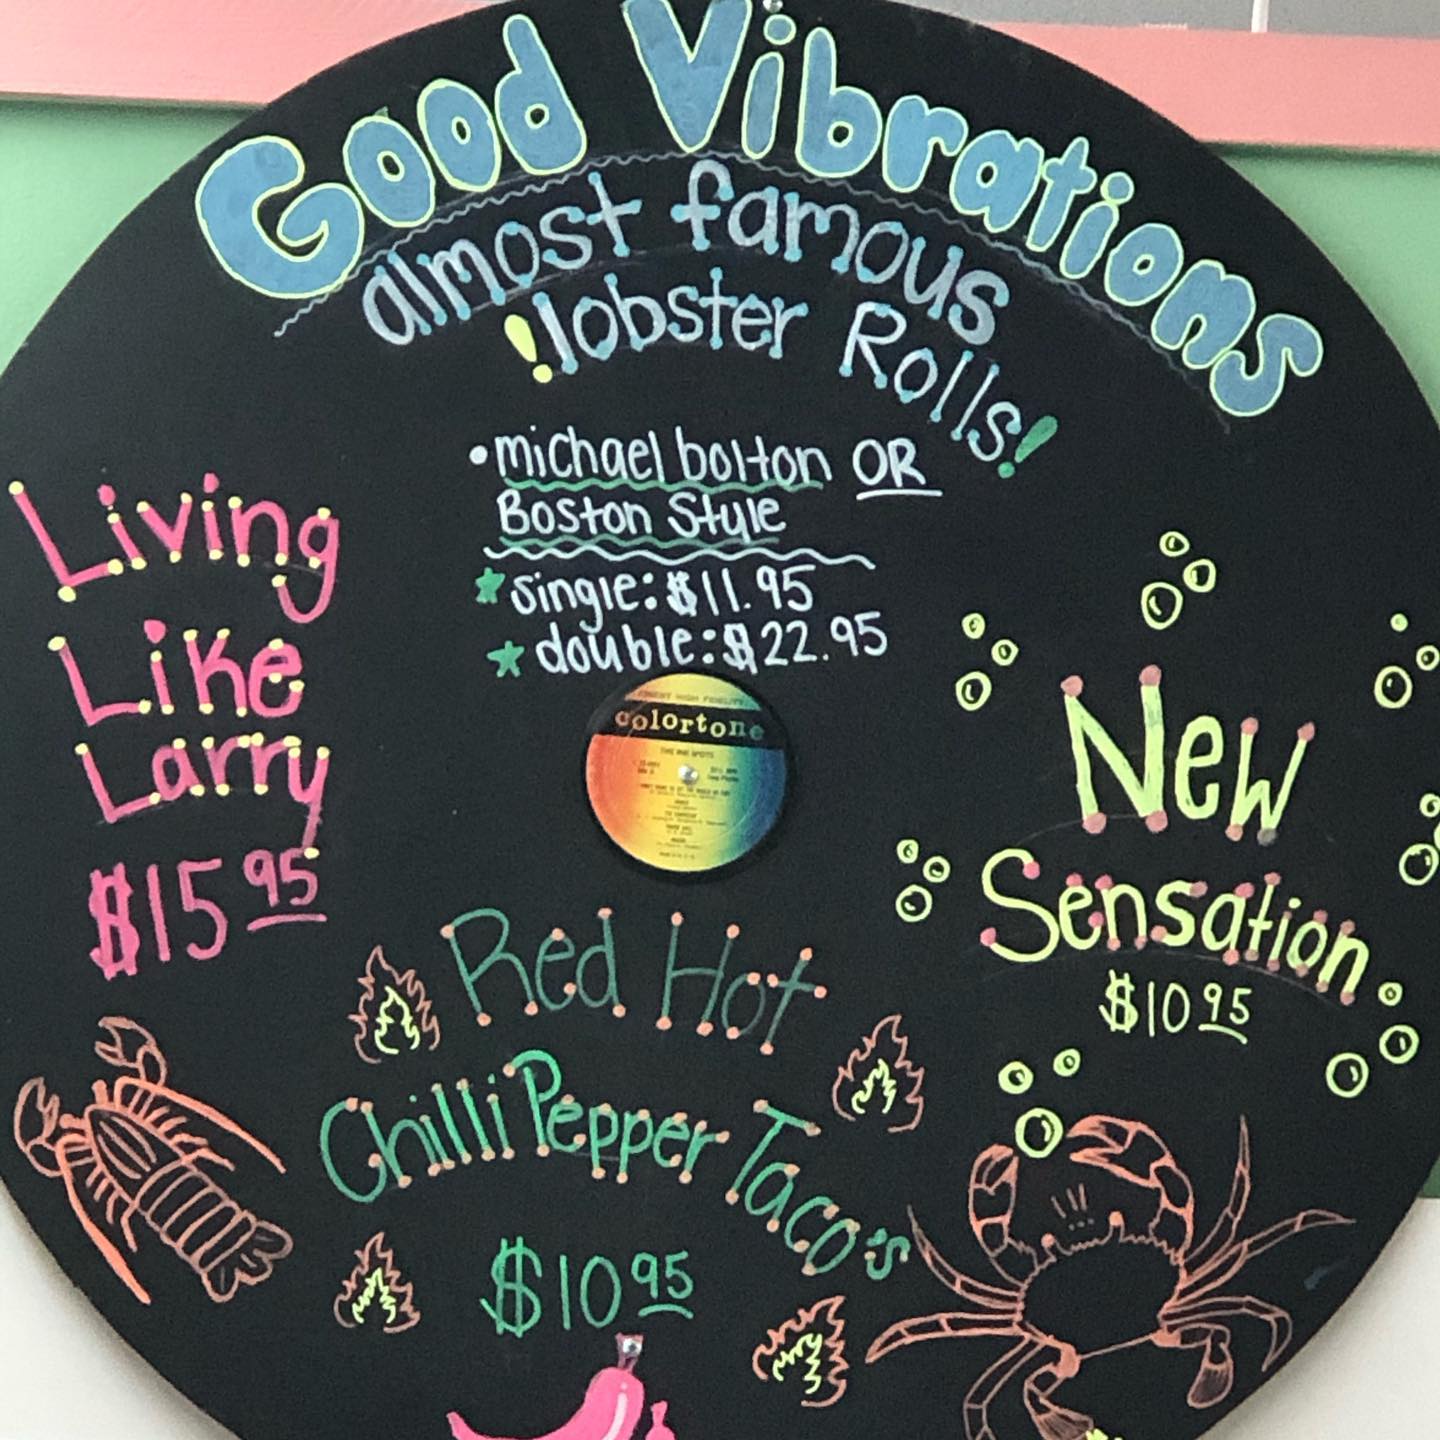 Good Vibrations
almost famous
!lobster Rolls!
•michael bolton OR
Boston Style
single: $11.95
double: $22.95
Living
Like
Larry
$15 95
colortone
New
Sensation
$10 95
Red Hot
Chilli Pepper Taco's
$10 95